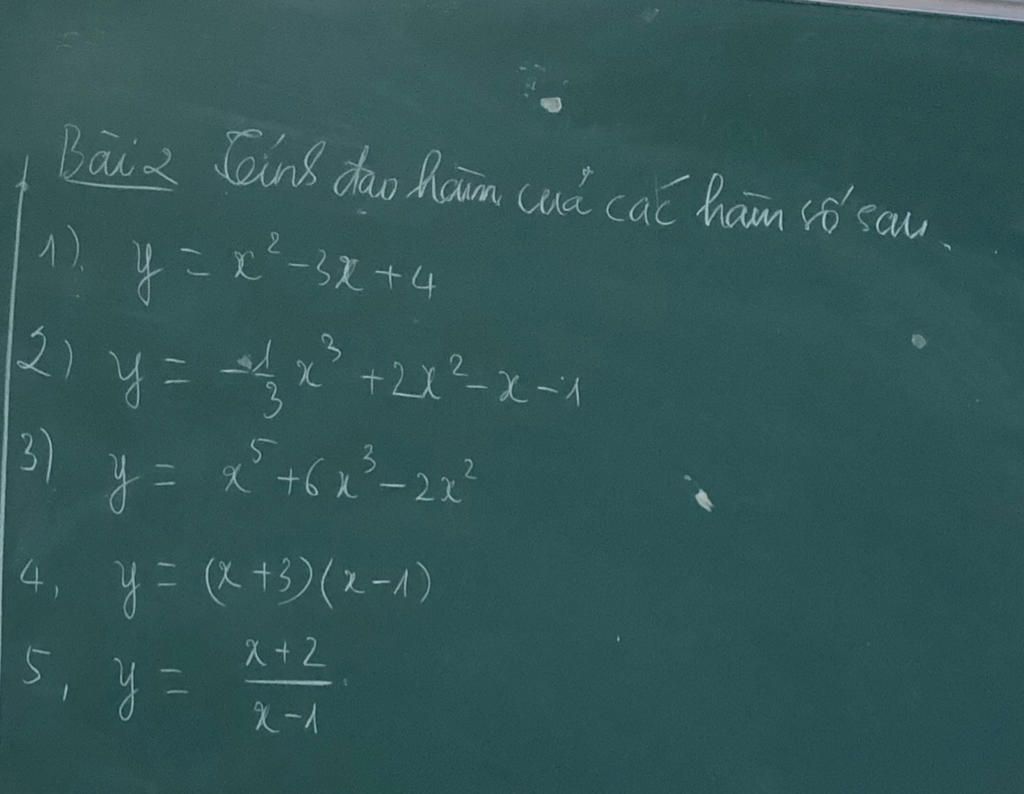 Bài 2 Tính đạo hàm của các hàm số sau.
1). y = x² - 3x + 4
2) y = -1/3 x³ + 2x² - x - 1
3) y = x⁵ + 6x³ - 2x²
4, y = (x + 3)(x - 1)
5, y = (x + 2)/(x - 1)